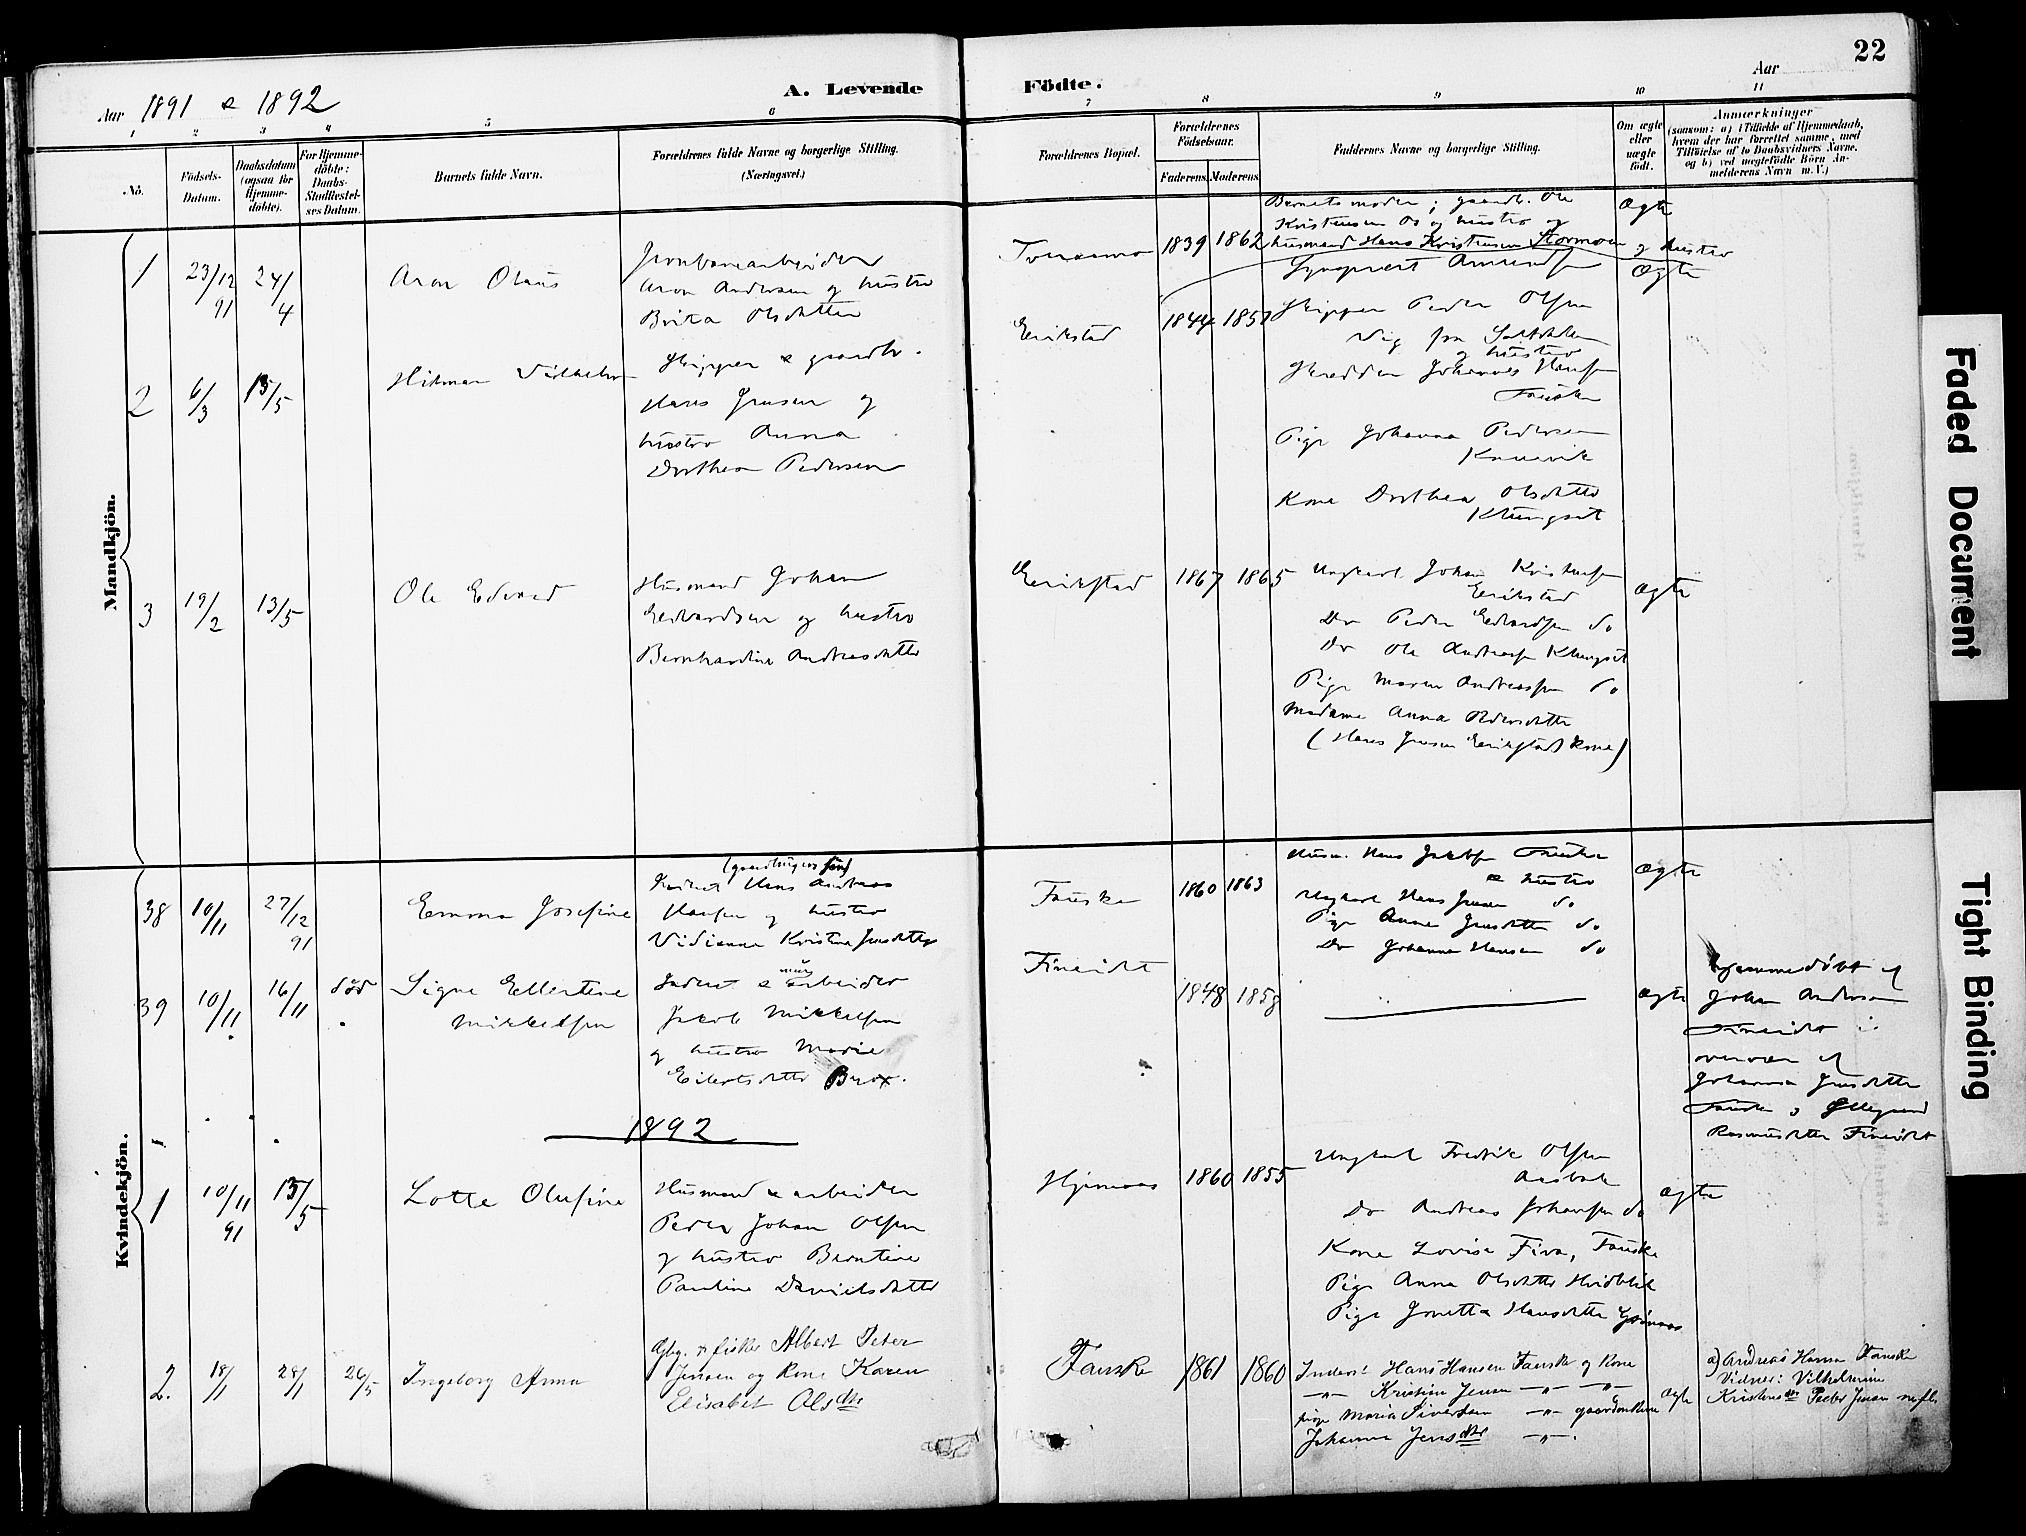 22
Aar 1891 & 1892
A. Levende Födte.
Aar
1 2 3 4 5 6 7 8 9 10 11
No.
Födsels-
Datum.
Daabsdatum
(ogsaa for
Hjemme-
döbte).
For Hjemme-
döbte:
Daabs-
Stadfæstel-
ses Datum.
Barnets fulde Navn.
Forældrenes fulde Navne og borgerlige Stilling.
(Næringsvei.)
Forældrenes Bopæl.
Forældrenes
Födselsaar.
Faderens. Moderens.
Faddernes Navne og borgerlige Stilling.
Om ægte
eller
uægte
födt.
Anmærkninger
(saasom: a) i Tilfælde af Hjemmedaab,
hvem der har forrettet samme, med
Tilföielse af to Daabsvidners Navne,
og b) ved uægtefödte Börn An-
melderens Navn m. V.)
Mandkjön.
1
23/12 91
24/4
Aron Olaus
Jernbanearbeider
Aron Andersen og hustro
Brita Olsdatter
1839 1862
Barnets moder; gaardb. Ole
Kristensen og hustro og
husmand Hans Kristensen Stormoen og hustro
Ægte
2
6/3
15/5
Hilmar Vilhelm
Skipper & gaardbr.
Hans Jensen og
hustro Anna
Dorthea Pedersen
Erikstad
1844 1857
Skipper Peder Olsen
Vig fra Saltdalen
og hustro
Skredder Johannes Hansen
Fauske
Pige Johanna Pedersen
Kone Dorthea Olsdatter
Klungset
Ægte
3
19/2
13/5
Ole Edvard
Husmand Johan
Edvardsen og hustro
Bernhardine Andreasdatter
Erikstad
1867 1865
Ungkarl Johan Kristensen
Erikstad
Do Peder Edvardsen do
Do Ole Andreassen Klungset
Pige Maren Andreassen do
Madame Anna Pedersdatter
(Hans Jensen Erikstad kone)
Ægte
Kvindekjön.
38
10/11
27/12 91
Emma Josefine
(gaardbrugers søn)
Inderst Hans Andreas
Hansen og hustro
Vidianna Kristina Jensdatter
Fauske
1860 1863
Husm. Hans Jakobsen Fauske
& hustro
Ungkarl Hans Jensen do
Pige Anna Jensdatter do
Do Johanna Hansen do
Ægte
39
10/11
16/11
død
Signe Ellertine
Mikkelsen
Inderst & arbeider
Jakob Mikkelsen
og hustro Marie
Eilertsdatter Brox.
Fineidet
1848 1858
Ægte
hjemmedøbt af
Johan Andersen
Fineidet i
nærvær af
Johanna Jensdatter
Fauske og Ellegaard
Rasmusdatter Fineidet
1892
1
10/11 91
13/5
Lotte Olufine
Husmand & arbeider
Peder Johan Olsen
og hustro Berntine
Pauline Danielsdatter
1860 1855
Ungkarl Fredrik Olsen
Do Andreas Johansen do
Kone Lovise Fiva, Fauske
Pige Anna Olsdatter Hvidblik
Pige Jonetta Hansdatter
Ægte
2.
18/1
28/1
26/5
Ingeborg Anna
Gbg. & fisker Albert Peter
Jensen og Kone Karen
Elisabet Olsdtr
Fauske
1861 1860
Inders: Hans Hansen Fauske og Kone
–"– Kristian Jensen –"– –"–
pige Maria Sivertsen –"– gaardmkone
Johanna Jensdtr –"–.
ægte
a) Andreas Hansen Fauske
Vidner: Vilhelmine
Kristensdtr Peder Jensen
Faded Document
Tight Binding